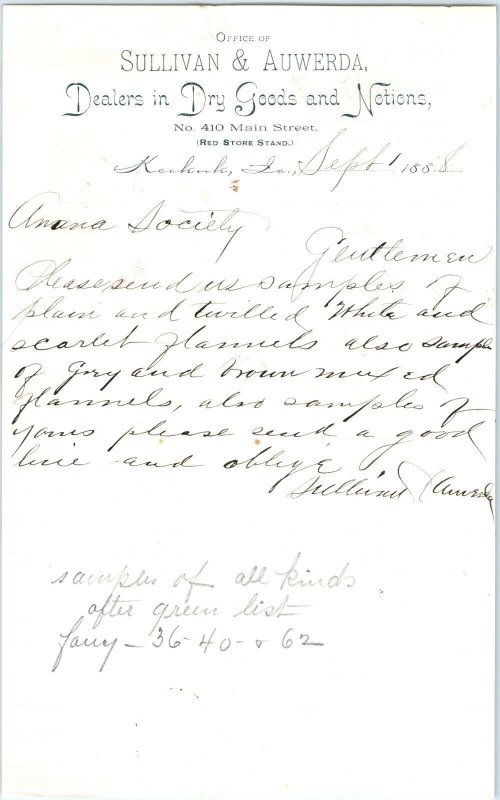 OFFICE OF
SULLIVAN & AUWERDA,
Dealers in Dry Goods and Notions,
No. 410 Main Street,
(RED STORE STAND.)
Keokuk, Ia., Sept 1 1888
Amana Society
Gentlemen
Please send us samples of
plain and twilled White and
scarlet flannels also sample
of Grey and brown mixed
flannels, also samples of
yarns please send a good
line and oblige
Sullivan & Auwerda
samples of all kinds
after green list
fancy - 36 - 40 - & 62